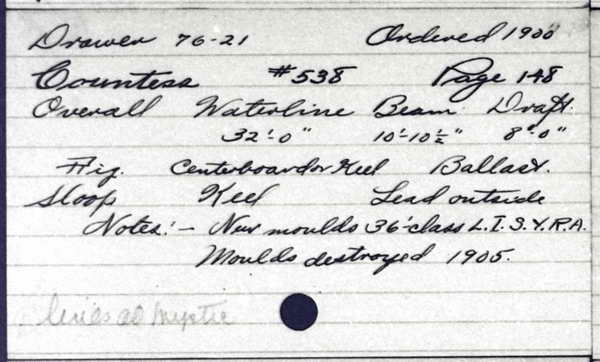 Drawer 76-21 Ordered 1900
Countess #538 Page 148
Overall Waterline Beam Draft.
32'-0" 10'-10½" 8'-0"
Fig. Centerboard or Keel Ballast.
Sloop Keel Lead outside
Notes:- New moulds 36'-class L.I.S.Y.R.A.
Moulds destroyed 1905.
lines at Mystic